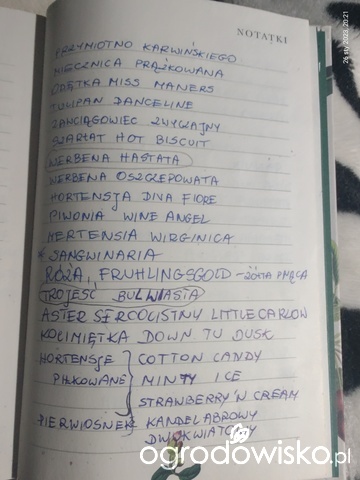 NOTATKI
26 sty 2023, 20:21
PRZYMIOTNO KARWIŃSKIEGO
MIECZNICA PRĄŻKOWANA
ODĘTKA MISS MANERS
TULIPAN DANCELINE
ZANCIĄGOWIEC ZWYCZAJNY
SZARŁAT HOT BISCUIT
WERBENA HASTATA
WERBENA OSZCZEPOWATA
HORTENSJA DIVA FIORE
PIWONIA WINE ANGEL
MERTENSIA WIRGINICA
* SANGWINARIA
RÓŻA, FRUHLINGSGOLD - ŻÓŁTA PNĄCA
TROJEŚĆ BULWIASTA
ASTER SERCOLISTNY LITTLE CARLOW
KOCIMIĘTKA DOWN TU DUSK
HORTENSJE COTTON CANDY
PIŁKOWANE MINTY ICE
STRAWBERRY'N CREAM
PIERWIOSNEK KANDELABROWY
DWUKWIATOWY
ogrodowisko.pl